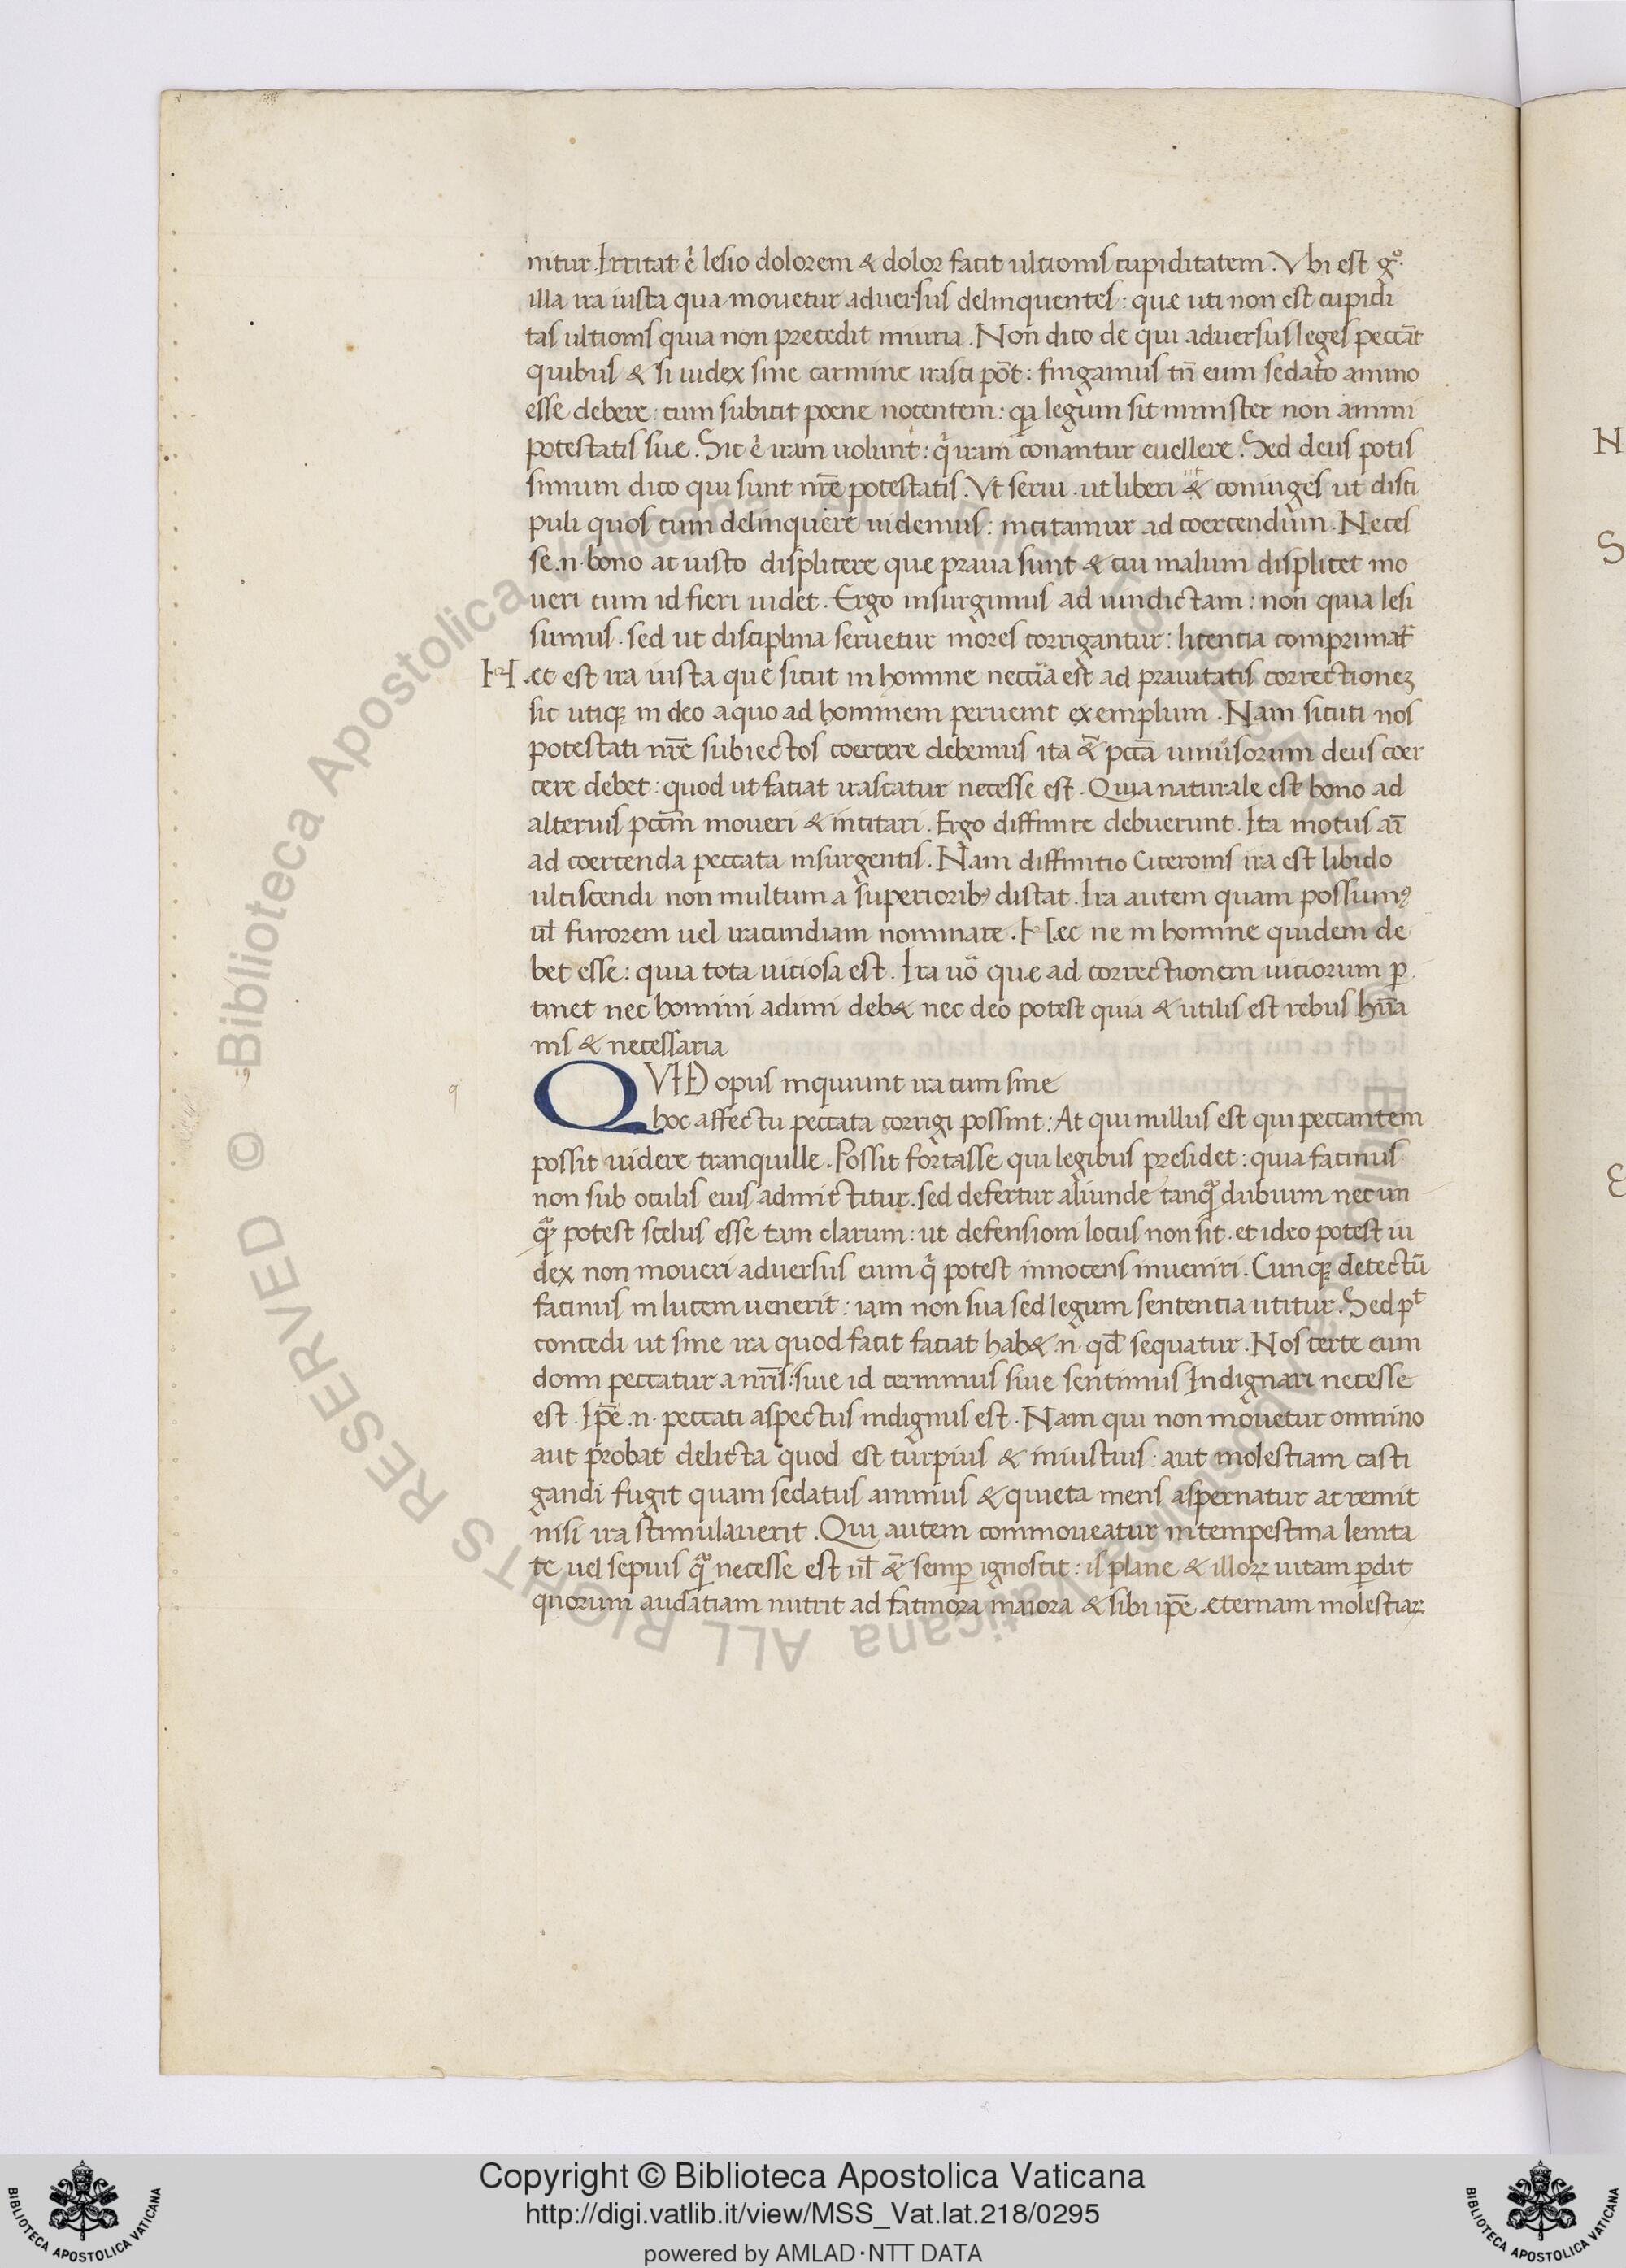 nitur. Irritat .n. lesio dolorem & dolor facit ultionis cupiditatem. Vbi est gͦ.
illa ira iusta qua mouetur aduersus delinquentes: que uti non est cupidi
tas ultionis quia non precedit iniuria. Non dico de qui aduersus leges peccāt
quibus & si iudex sine carmine irasci pōt: fingamus tn̄ eum sedato animo
esse debere: cum subicit poene nocentem: quia legum sit minister non animi
potestatis sue. Sic uolunt: iram conantur euellere. Sed deus potis
simum dico qui sunt nr̄e potestatis. Vt serui. ut liberi & coniuges ut disci
puli quos cum delinquere uidemus: incitamur ad coercendum. Neces
se .n. bono ac iusto displicere que praua sunt & cui malum displicet mo
ueri cum id fieri uidet. Ergo insurgimus ad uindictam: non quia lesi
sumus. sed ut disciplina seruetur mores corrigantur: licencia comprimat᷑
Hec est ira iusta que sicut in homine neccīa est ad prauitatis correctioneʒ
sic utiqʒ in deo a quo ad hominem peruenit exemplum. Nam sicuti nos
potestati nr̄e subiectos coercere debemus ita &̄ pccā uniuͥsorum deus coer
cere debet: quod ut faciat irascatur necesse est. Quia naturale est bono ad
alterius pccm̄ moueri & incitari. Ergo diffinire debuerunt. Ita motus aī
ad coercenda peccata insurgentis. Nam diffinitio Ciceronis ira est libido
ulciscendi non multum a superioribꝰ distat. Ira autem quam possumꝰ
ul̄ furorem uel iracundiam nominare. Hec ne in homine quidem de
bet esse: quia tota uiciosa est. Ira uō que ad correctionem uiciorum ꝑ
tinet nec homini adimi deb& nec deo potest quia & utilis est rebus hūa
nis & necessaria
QVID opus inquiunt ira cum sine
hoc affectu peccata corrigi possint: At qui nullus est qui peccantem
possit uidere tranquille. Possit fortasse qui legibus presidet: quia facinus
non sub oculis eius admictitur. sed defertur aliunde tanqͣ dubium nec un
qͣ potest scelus esse tam clarum: ut defensioni locus non sit. et ideo potest iu
dex non moueri aduersus eum qͥ potest innocens inueniri. Cunqʒ detectū
facinus in lucem uenerit: iam non sua sed legum sentencia utitur. Sed pᵗ
concedi ut sine ira quod facit faciat hab& .n. qd̄ sequatur. Nos certe cum
domi peccatur a nrīs. siue id cernimus siue sentimus Indignari necesse
est. Ip̄e .n. peccati aspectus indignus est. Nam qui non mouetur omnino
aut probat delicta quod est turpius & iniustius: aut molestiam casti
gandi fugit quam sedatus animus & quieta mens aspernatur ac remit
nisi ira stimulauerit. Qui autem commoueatur intempestina lenita
te uel sepius qͣ necesse est ul̄ &̄ semꝑ ignoscit: is plane & illoꝝ uitam ꝑdit
quorum audatiam nutrit ad facinora maiora & sibi ip̄e eternam molestiaꝝ
9
N
S
© Biblioteca Apostolica Vaticana ALL RIGHTS RESERVED
Copyright © Biblioteca Apostolica Vaticana
http://digi.vatlib.it/view/MSS_Vat.lat.218/0295
powered by AMLAD·NTT DATA
BIBLIOTECA APOSTOLICA VATICANA
BIBLIOTECA APOSTOLICA VATICANA